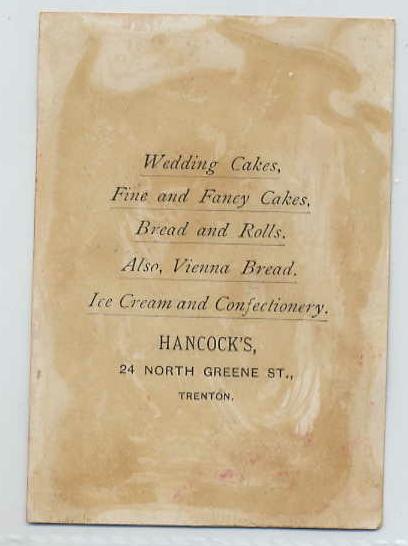 Wedding Cakes,
Fine and Fancy Cakes,
Bread and Rolls.
Also, Vienna Bread.
Ice Cream and Confectionery.
HANCOCK'S,
24 NORTH GREENE ST.,
TRENTON.